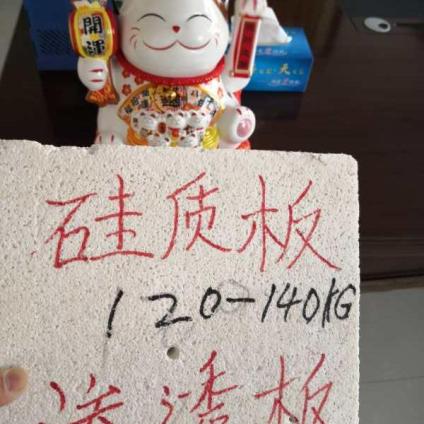 開運
硅质板
120-140KG
渗透板